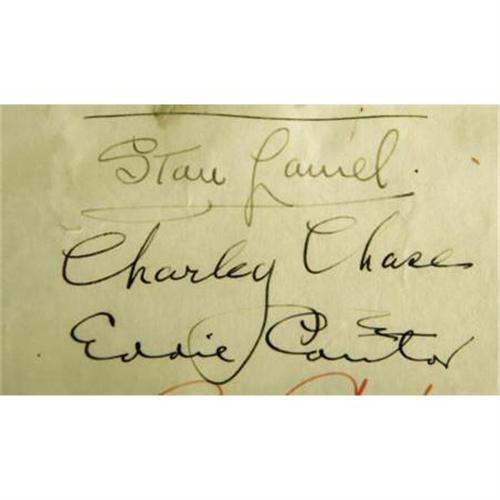 Stan Laurel.
Charley Chase
Eddie Cantor